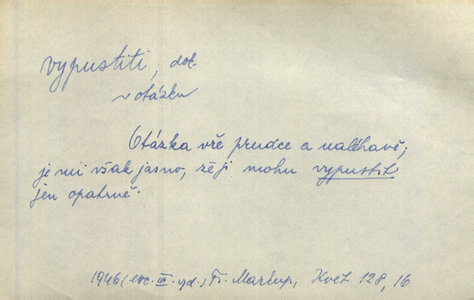 vypustiti, dok.
v otázku
Otázka vře prudce a naléhavě;
je mi však jasno, že ji mohu vypustit
jen opatrně.
1946 (evo. III. vyd.) Fr. Markup, Květ 128, 16